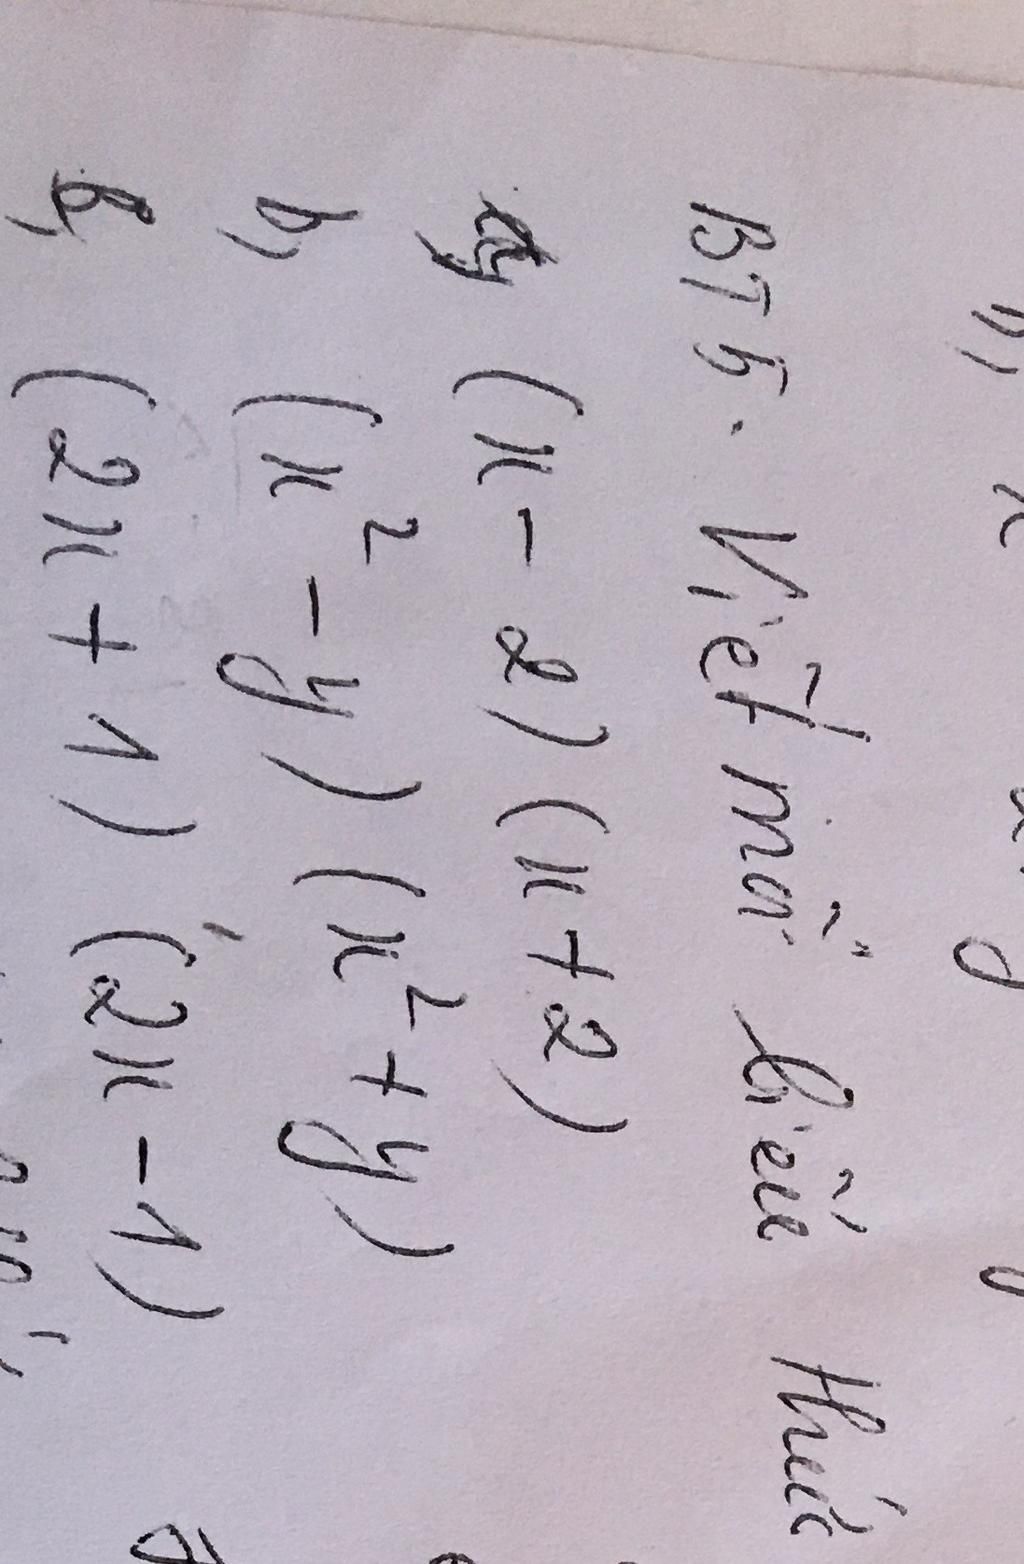 BT 5. Viết mỗi biểu thức
(x - 2) (x + 2)
b, (x² - y) (x² + y)
(2x + 1) (2x - 1)